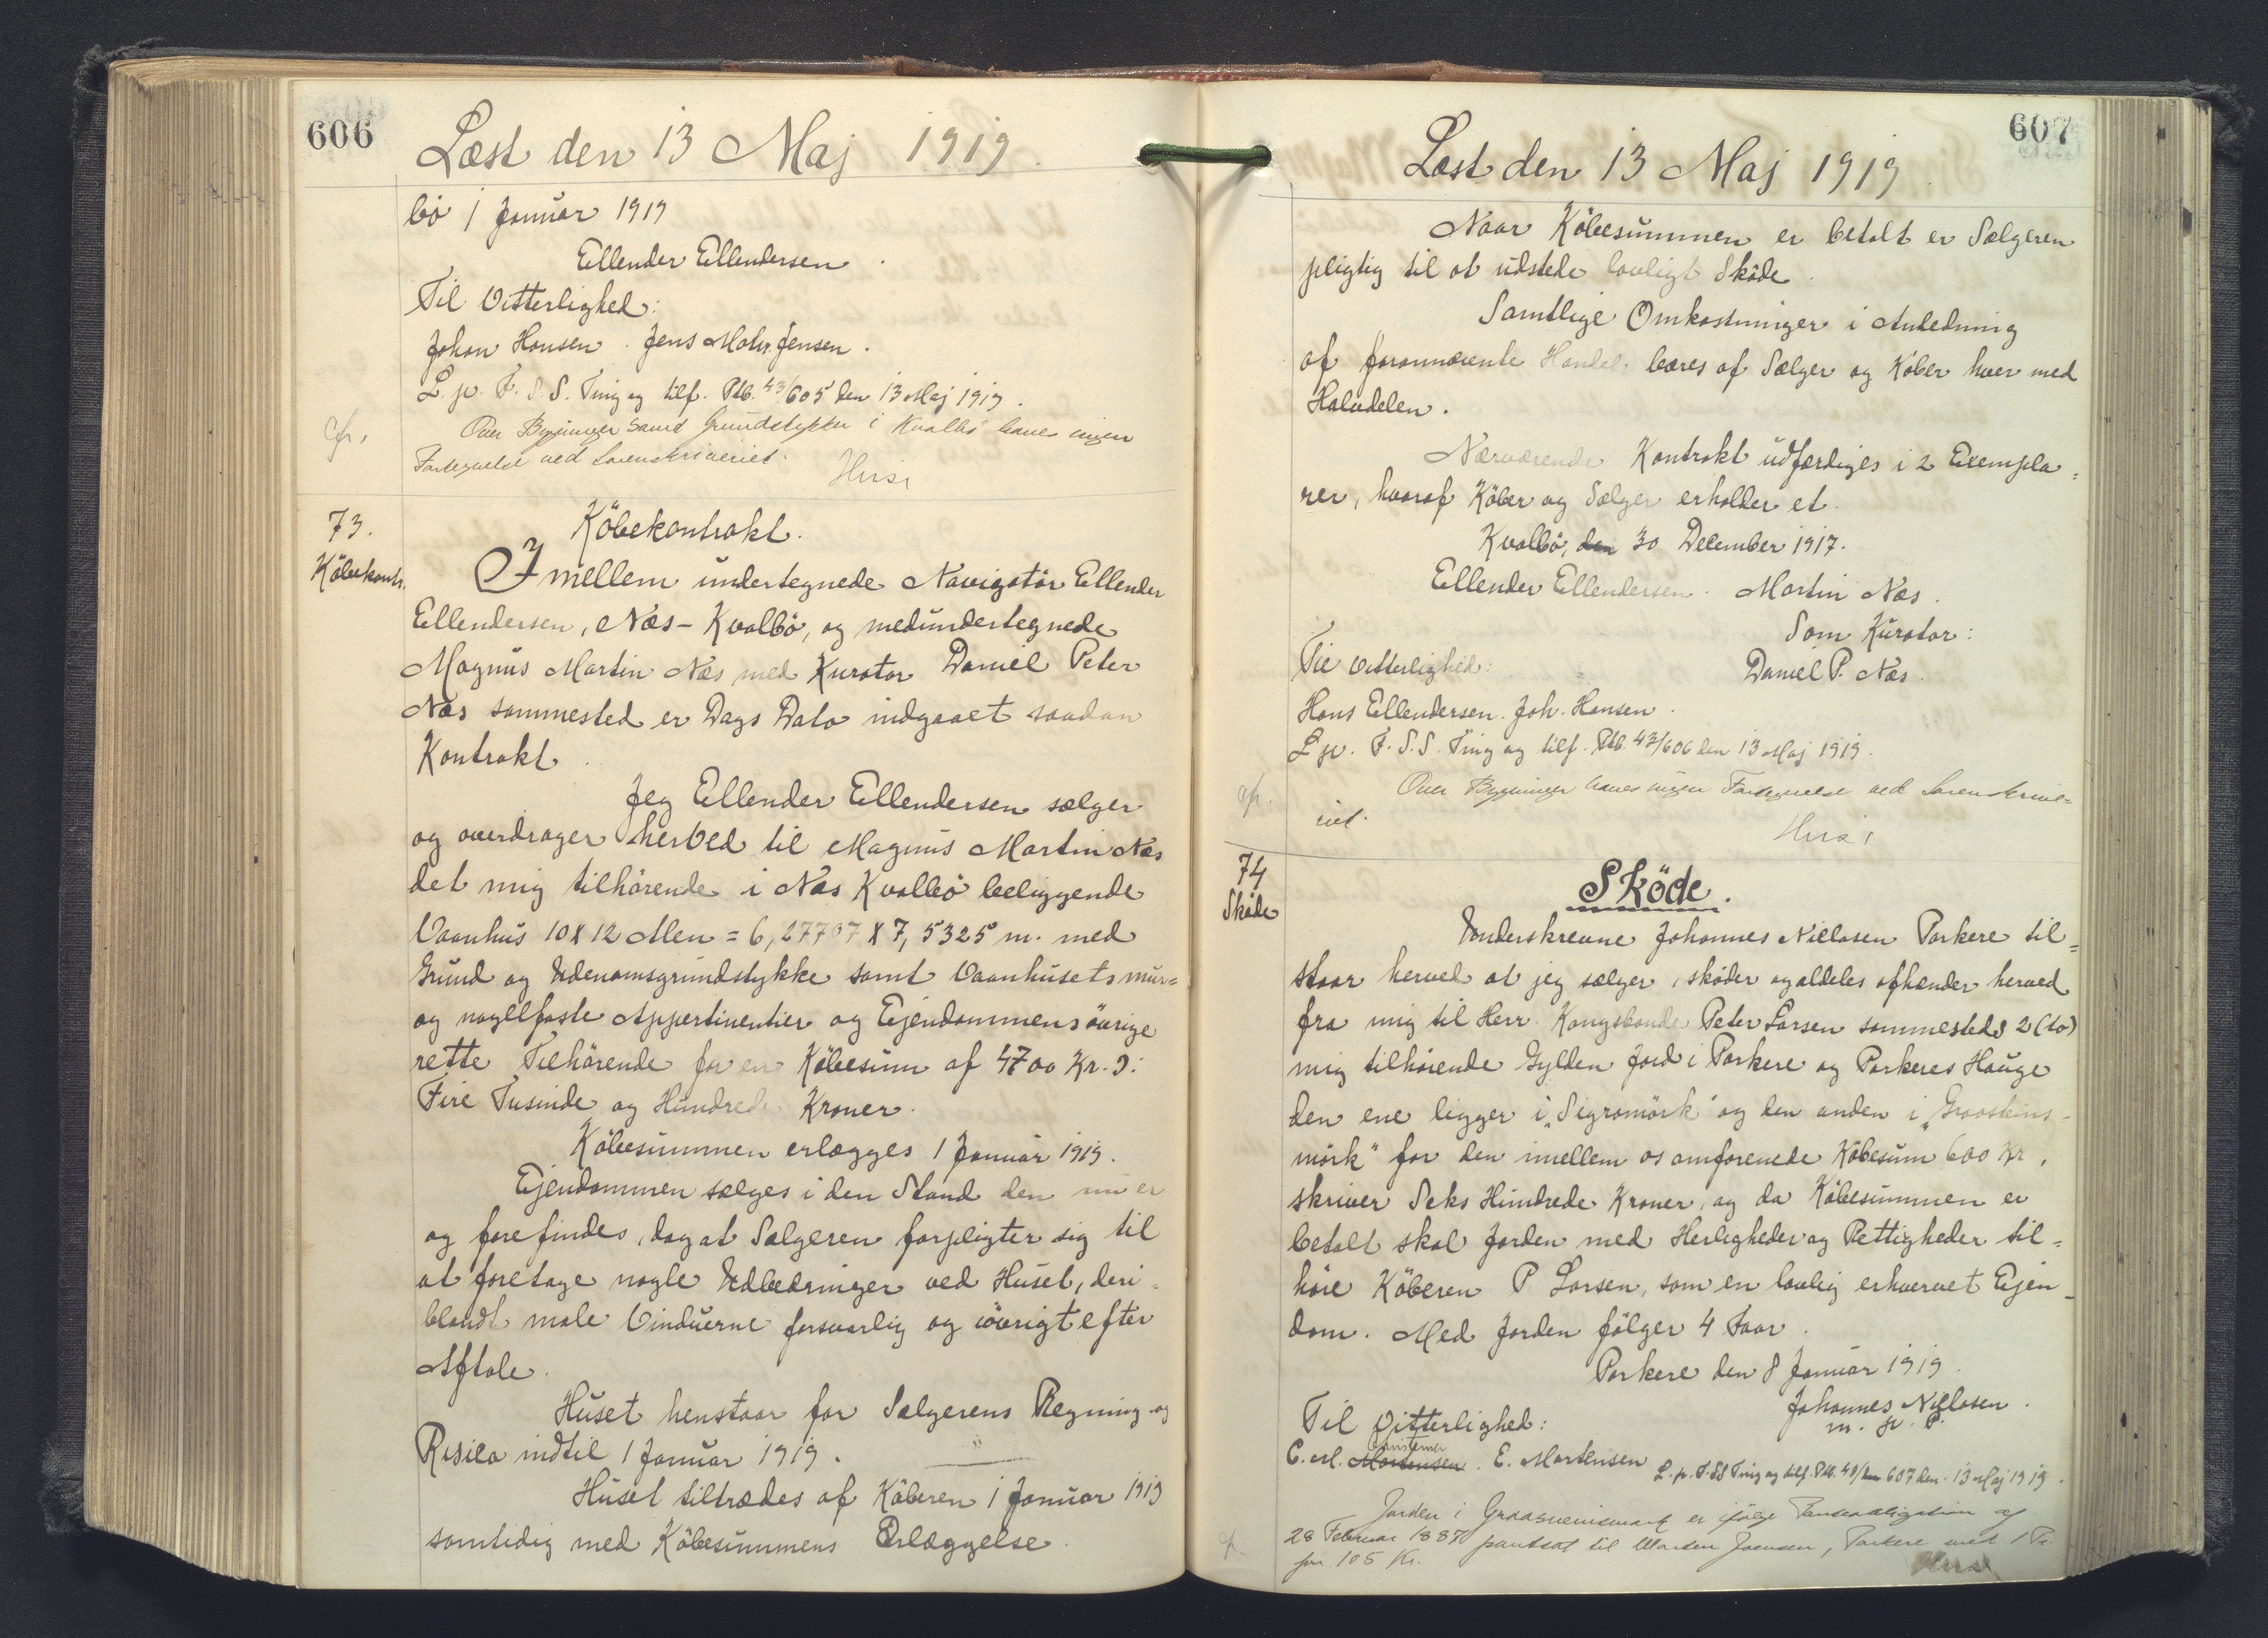 606
Læst den 13 Maj 1919.
bö 1 Januar 1919
Ellender Ellendersen.
Til Vitterlighed:
Johan Hansen. Jens Mohr. Jensen.
L. p. F. S. S. Ting og tilf. Ptb. 43/605 den 13 Maj 1919.
cfr. Over Bygninger samt Grundstykker i Kvalbö haves ingen
Fortegnelse ved Sorenskriveriet.
73. Köbekontrakt.
Köbekontr. Imellem undertegnede Navigatör Ellender
Ellendersen, Næs-Kvalbö, og medundertegnede
Magnus Martin Næs med Kurator Daniel Peter
Næs sammested er Dags Dato indgaaet saadan
Kontrakt.
Jeg Ellender Ellendersen sælger
og overdrager herved til Magnus Martin Næs
det mig tilhörende i Næs Kvalbö beliggende
Vaanhus 10 X 12 Alen = 6,27707 X 7,5325 m. med
Grund og Udenomsgrundstykke samt Vaanhusets mur=
og nagelfaste Appertinentier og Ejendommens övrige
rette Tilhörende for en Köbesum af 4700 Kr. ɔ:
Fire Tusinde og Hundrede Kroner.
Köbesummen erlægges 1 Januar 1919.
Ejendommen sælges i den Stand den nu er
og forefindes, dog at Sælgeren forpligter sig til
at foretage nogle Udbedringer ved Huset, deri=
blandt male Vinduerne forsvarlig og iövrigt efter
Aftale.
Huset henstaar for Sælgerens Regning og
Risiko indtil 1 Januar 1919.
Huset tiltrædes af Köberen 1 Januar 1919
samtidig med Köbesummens Erlæggelse.
607
Læst den 13 Maj 1919.
Naar Köbesummen er betalt er Sælgeren
pligtig til at udstede lovligt Sköde.
Samtlige Omkostninger i Anledning
af forannævnte Handel bæres af Sælger og Köber hver med
Halvdelen.
Nærværende Kontrakt udfærdiges i 2 Exempla=
rer, hvoraf Köber og Sælger erholder et.
Kvalbö, den 30 December 1917.
Ellender Ellendersen. Martin Næs.
Som Kurator:
Til Vitterlighed: Daniel P. Næs.
Hans Ellendersen. Joh. Hansen.
L. p. F. S. S. Ting og tilf. Ptb. 43/606 den 13 Maj 1919.
cfr. Over Bygninger haves ingen Fortegnelse ved Sorenskrive=
riet.
74 Sköde.
Sköde Underskrevne Johannes Niclasen Porkere til=
staar herved at jeg sælger, sköder og aldeles afhænder herved
fra mig til Herr Kongsbonde Peter Larsen sammesteds 2 (to)
mig tilhörende Gylden Jord i Porkere og Porkeres Hauge
den ene ligger i „Sigramörk" og den anden i „Graasteins-
mörk" for den imellem os omforenede Köbesum 600 Kr.,
skriver Seks Hundrede Kroner, og da Köbesummen er
betalt skal Jorden med Herligheder og Rettigheder til=
höre Köberen P. Larsen, som en lovlig erhvervet Ejen=
dom. Med Jorden fölger 4 Faar.
Porkere den 8 Januar 1919.
Johannes Niclasen.
m. p. P.
Til Vitterlighed:
C. M. Mortensen. E. Mortensen L. p. F. S S Ting og tilf. Ptb. 43/607 den 13 Maj 1919.
Jorden i er ifölge Panteobligation af
cfr. 28 Februar 1887 pantsat til Morten Joensen, Porkere med 1 Pr.
for 105 Kr.